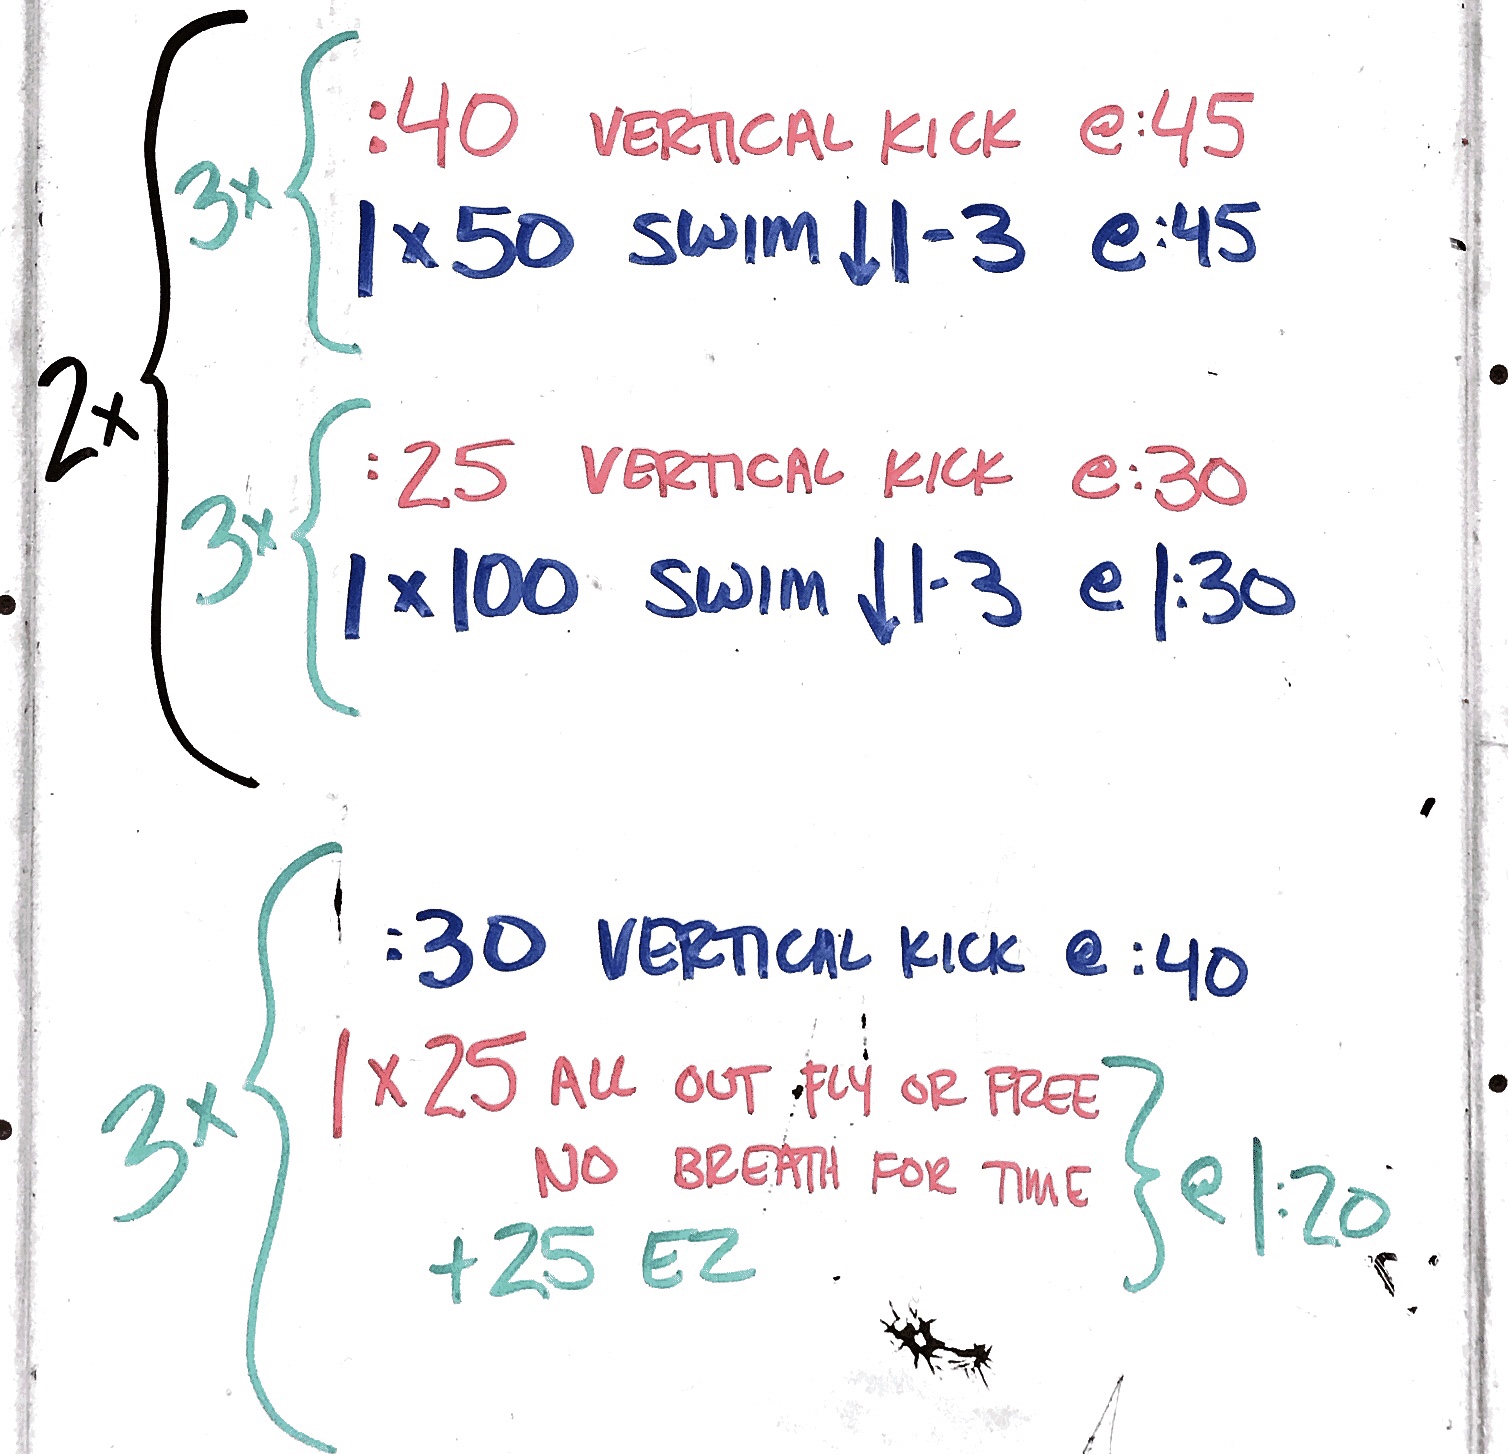 2x
3x
:40 VERTICAL KICK @:45
1x50 SWIM ↓1-3 @:45
3x
:25 VERTICAL KICK @:30
1x100 SWIM ↓1-3 @ 1:30
3x
:30 VERTICAL KICK @ :40
1x25 ALL OUT FLY OR FREE
NO BREATH FOR TIME
+25 EZ
@ 1:20